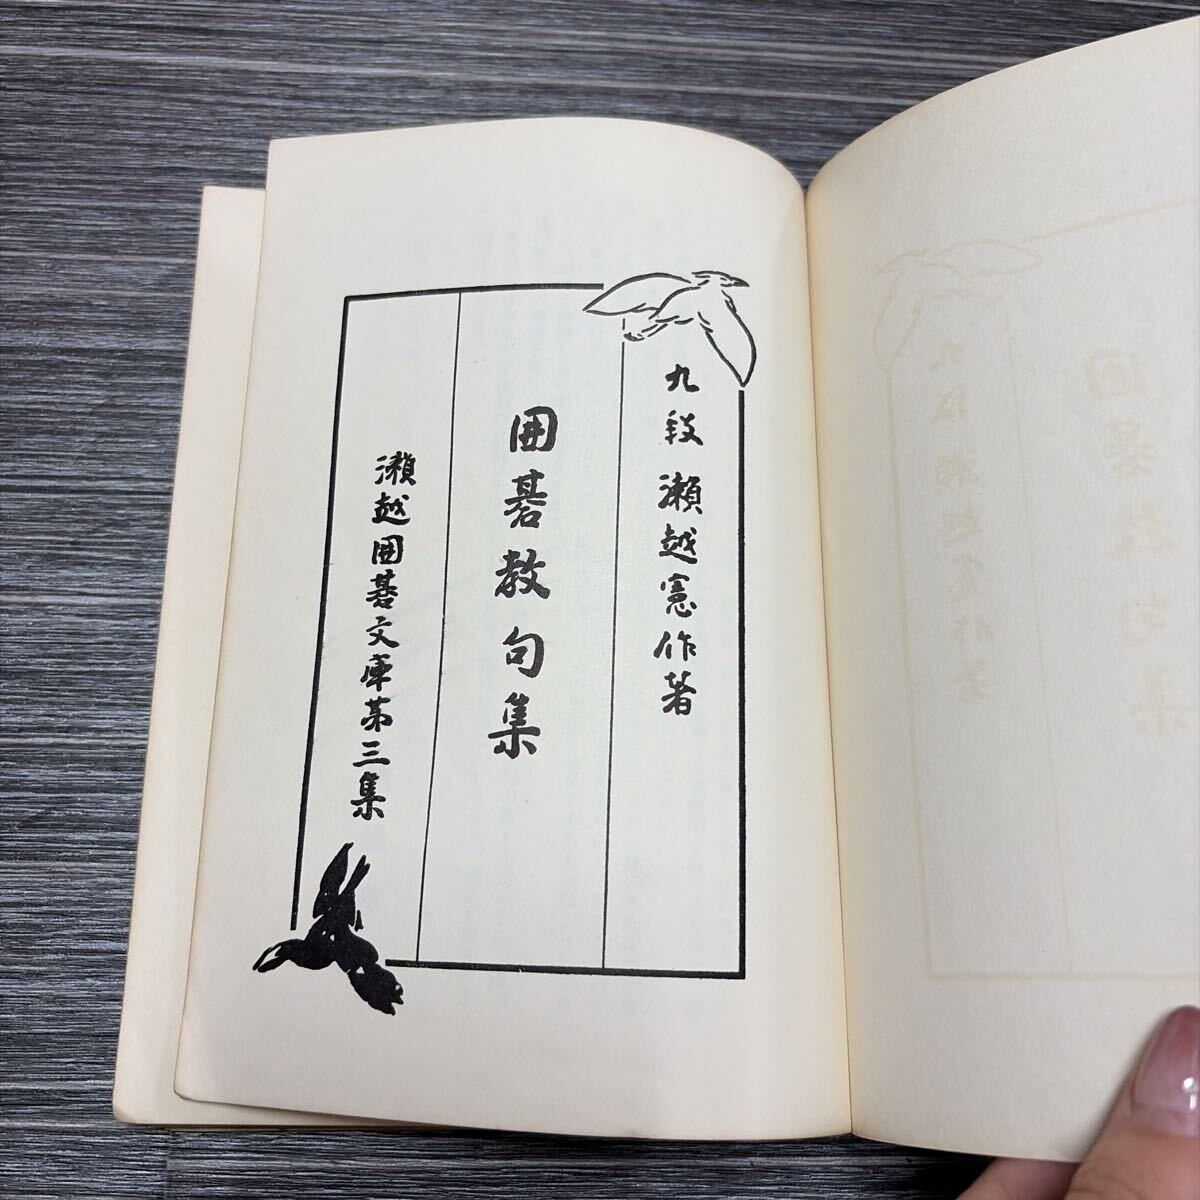 九段 瀬越憲作著
囲碁教句集
瀬越囲碁文庫第三集